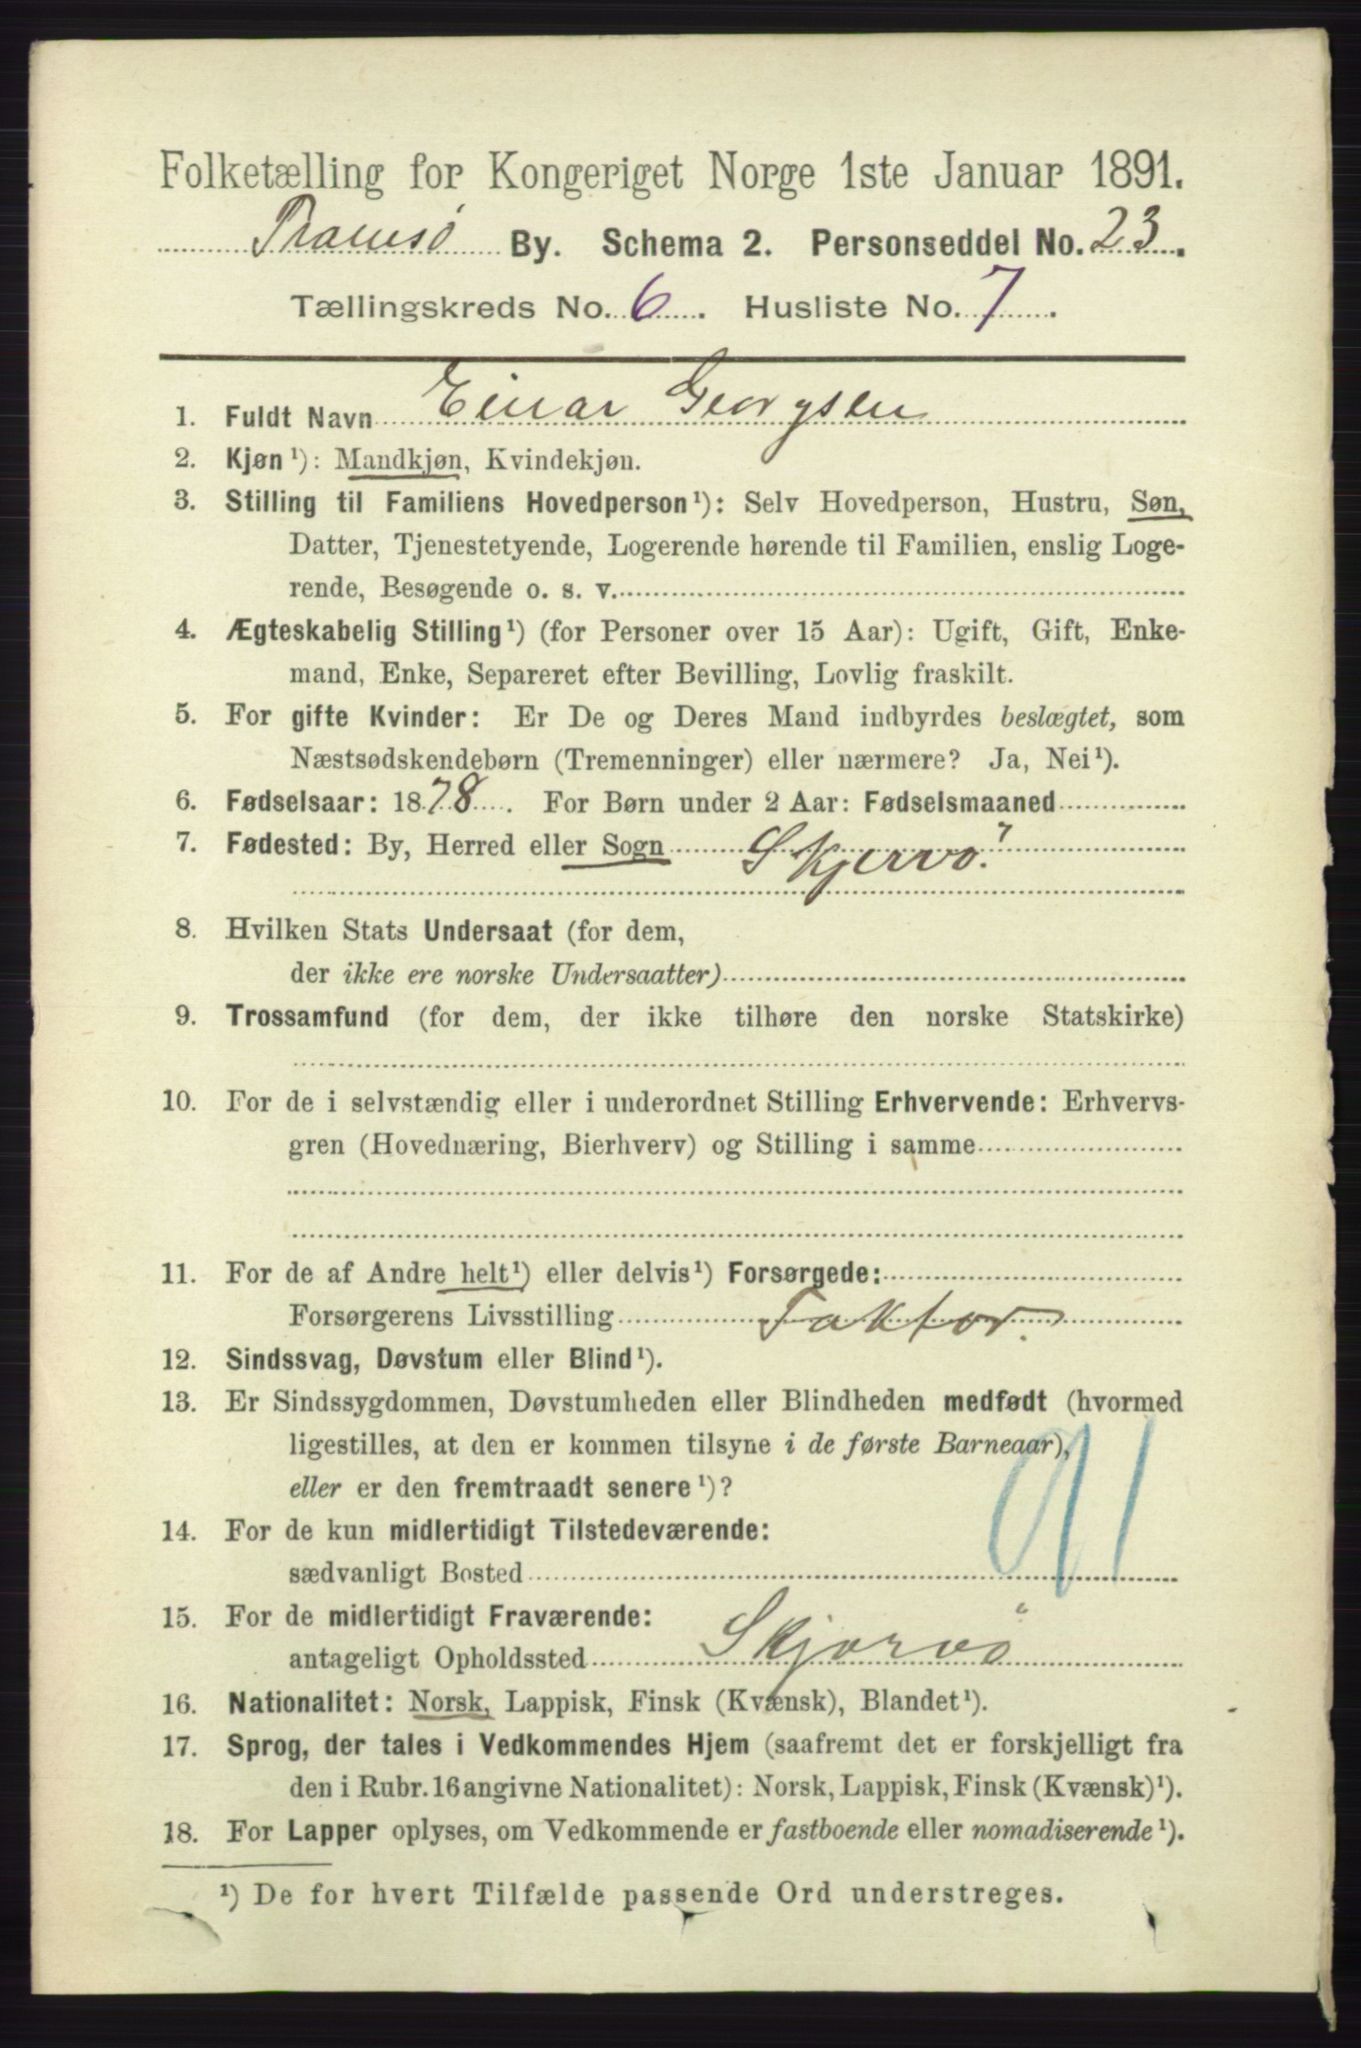 Folketælling for Kongeriget Norge 1ste Januar 1891.
Tromsö By. Schema 2. Personseddel No. 23.
Tællingskreds No. 6. Husliste No. 7.
1. Fuldt Navn Einar Georgsen
2. Kjøn¹): Mandkjøn, Kvindekjøn.
3. Stilling til Familiens Hovedperson¹): Selv Hovedperson, Hustru, Søn,
Datter, Tjenestetyende, Logerende hørende til Familien, enslig Loge-
rende, Besøgende o. s. v.
4. Ægteskabelig Stilling¹) (for Personer over 15 Aar): Ugift, Gift, Enke-
mand, Enke, Separeret efter Bevilling, Lovlig fraskilt.
5. For gifte Kvinder: Er De og Deres Mand indbyrdes beslægtet, som
Næstsødskendebørn (Tremenninger) eller nærmere? Ja, Nei¹).
6. Fødselsaar: 1878. For Børn under 2 Aar: Fødselsmaaned
7. Fødested: By, Herred eller Sogn Skjervö.
8. Hvilken Stats Undersaat (for dem,
der ikke ere norske Undersaatter)
9. Trossamfund (for dem, der ikke tilhøre den norske Statskirke)
10. For de i selvstændig eller i underordnet Stilling Erhvervende: Erhvervs-
gren (Hovednæring, Bierhverv) og Stilling i samme
11. For de af Andre helt¹) eller delvis¹) Forsørgede:
Forsørgerens Livsstilling Faktor.
12. Sindssvag, Døvstum eller Blind¹).
13. Er Sindssygdommen, Døvstumheden eller Blindheden medfødt (hvormed
ligestilles, at den er kommen tilsyne i de første Barneaar),
eller er den fremtraadt senere¹)?
91
14. For de kun midlertidigt Tilstedeværende:
sædvanligt Bosted
15. For de midlertidigt Fraværende:
antageligt Opholdssted Skjervö
16. Nationalitet: Norsk, Lappisk, Finsk (Kvænsk), Blandet¹).
17. Sprog, der tales i Vedkommendes Hjem (saafremt det er forskjelligt fra
den i Rubr. 16 angivne Nationalitet): Norsk, Lappisk, Finsk (Kvænsk)¹).
18. For Lapper oplyses, om Vedkommende er fastboende eller nomadiserende¹).
¹) De for hvert Tilfælde passende Ord understreges.